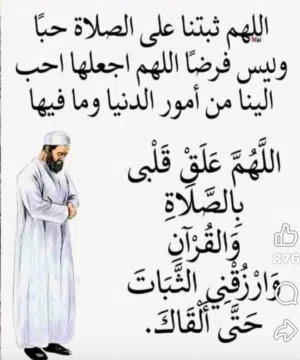 اللهم ثبتنا على الصلاة حبًا
وليس فرضًا اللهم اجعلها احب
الينا من أمور الدنيا وما فيها
اللَّهُمَّ عَلَقْ قَلْبى
بِالصَّلَاةِ
وَالقُرْآنِ
وَارْزُقْنِي الثَّبَاتَ
حَتَّى أَلْقَاكَ.
876